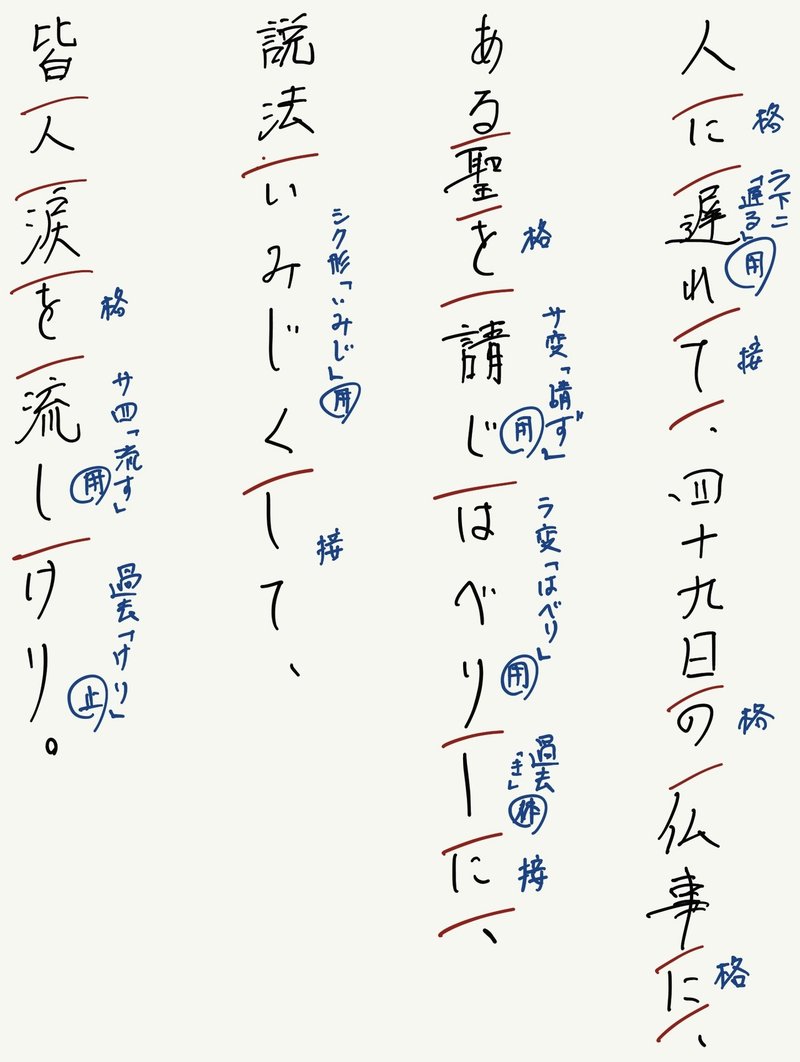 人に遅れて、四十九日の仏事に、
格
ラ下二「遅る」用
接
格
格
ある聖を請じはべりしに、
格
サ変「請ず」用
ラ変「はべり」用
過去「き」体
接
説法いみじくして、
シク形「いみじ」用
接
皆人涙を流しけり。
格
サ四「流す」用
過去「けり」止